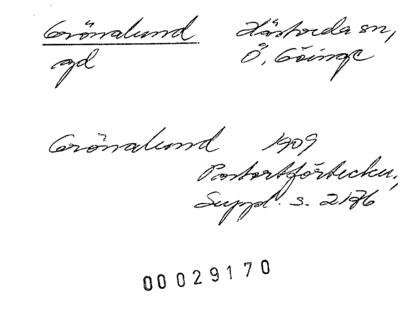 Grönalund Hästveda sn,
gd Ö. Göinge
Grönalund 1909
Postortförteckn.,
Suppl. s. 2176
00029170